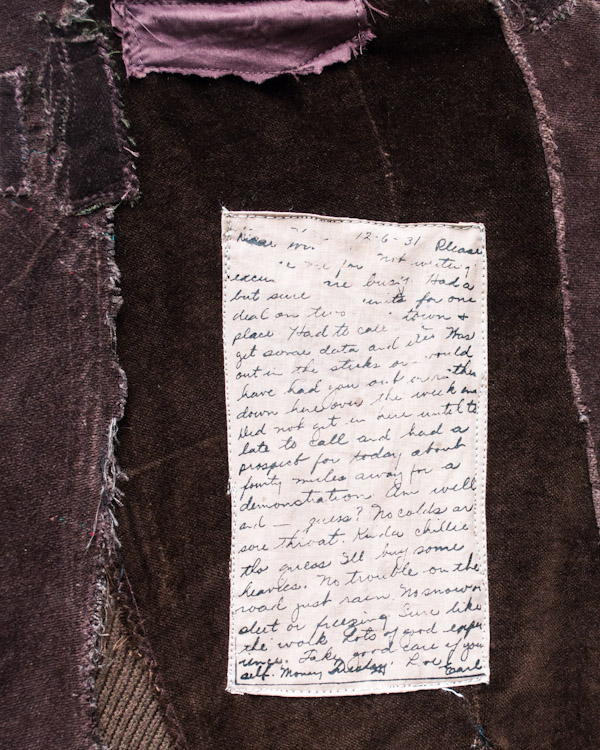 12-6-31 Please
me for not writing
but sure are busy Had a
deal on two units for one
place Had to call town +
get some data and Was
out in the sticks or would
have had you out or
down here over the week
Did not get in here until to
late to call and had a
prospect for today about
fourty miles away for a
demonstration Am well
and — guess? No colds or
sore throat. Kinda chillie
tho guess I'll buy some
heavies. No trouble on the
road just rain. No snow
sleet or freezing Sure like
the work Lots of good expe
rince. Take good care of your
self. Love Earl